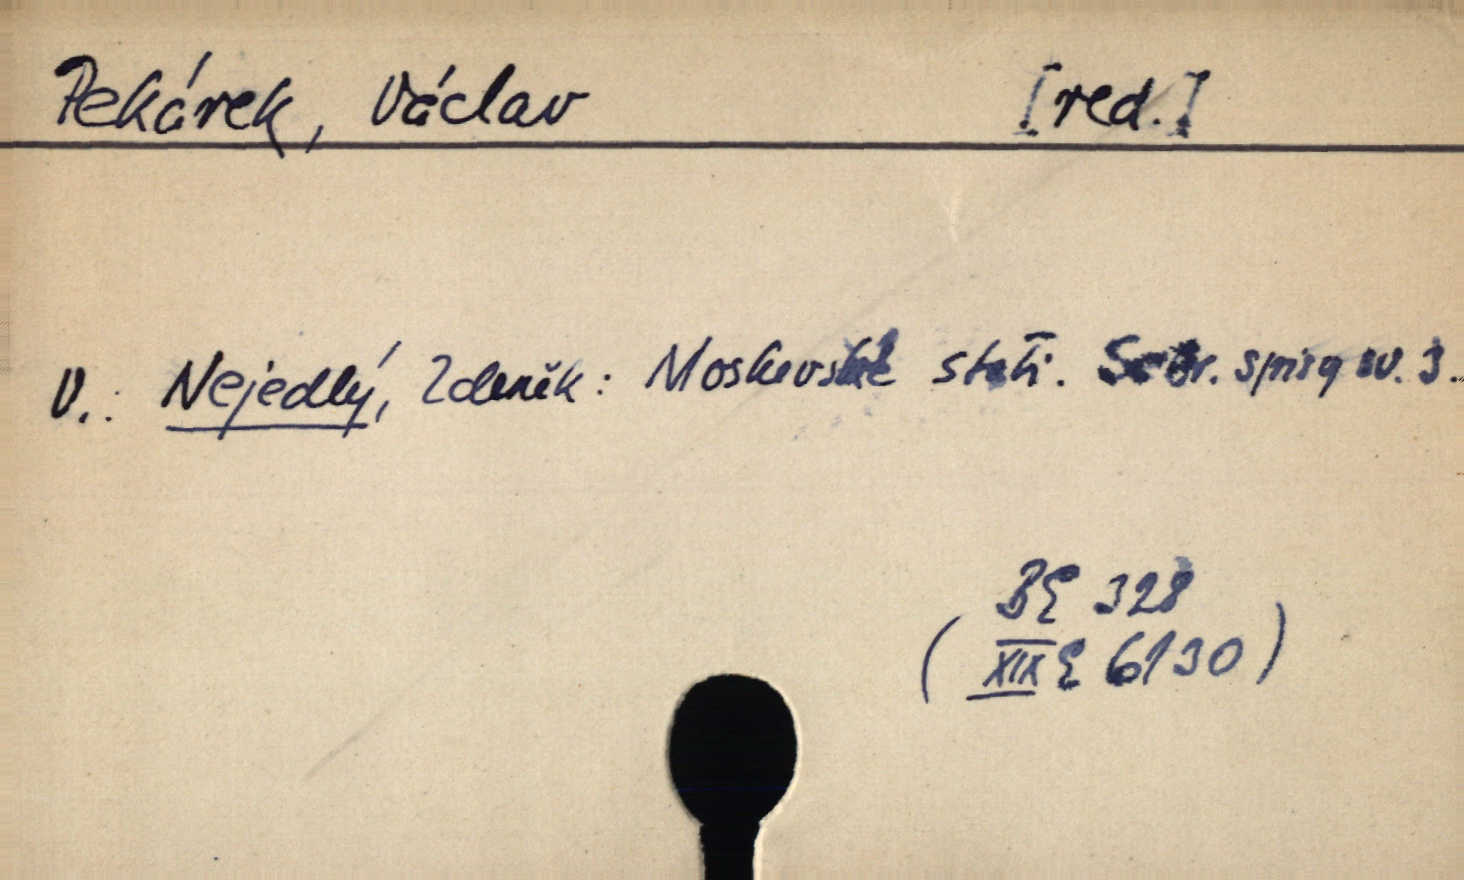 Pekárek, Václav [red.]
V.: Nejedlý, Zdeněk: Moskevské stati. Sebr. spisy sv. 3.
BE 328
(XIX E 6130)